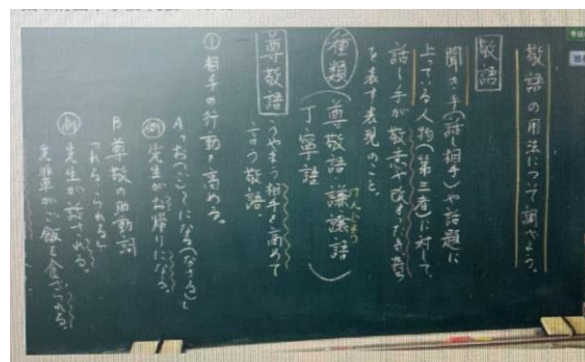 敬語の用法について調べよう。
敬語
聞き手(話し相手)や話題に
上っている人物(第三者)に対して、
話し手が敬意や改まった気持ち
を表す表現のこと。
種類(尊敬語 謙譲語
けんじょう
丁寧語)
尊敬語…うやまう相手を高めて
言う敬語。
①相手の行動を高める。
A "お(ご)~になる(なさる)"
例 先生がお帰りになる。
B 尊敬の助動詞
「れる・られる」
例 先生が話される。
先輩がご飯を食べられる。